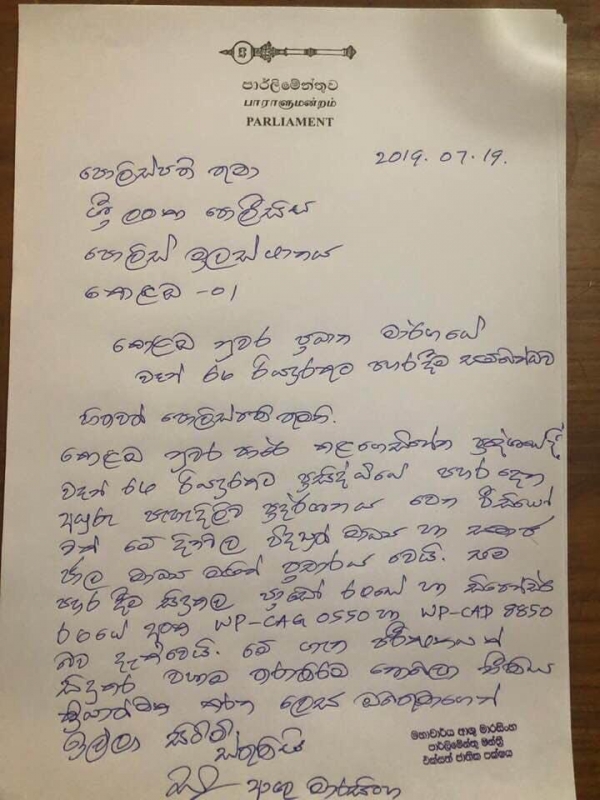 පාර්ලිමේන්තුව
பாராளுமன்றம்
PARLIAMENT
2019.07.19.
පොලිස්පති තුමා
ශ්‍රී ලංකා පොලීසිය
පොලිස් මූලස්ථානය
කොළඹ -01
කොළඹ නුවර ප්‍රධාන මාර්ගයේ
වෑන් රථ රියදුරකුට පහරදීම සම්බන්ධව
හිතවත් පොලිස්පති තුමනි.
කොළඹ නුවර පාරේ කළගෙඩිහේන ප්‍රදේශයේදී
වෑන් රථ රියදුරකුට ප්‍රසිද්ධියේ පහර දෙන
අයුරු පැහැදිලිව ප්‍රදර්ශනය වෙන වීඩියෝ
වක් මේ දිනවල විද්‍යුත් මාධ්‍ය හා සමාජ
ජාල මාධ්‍ය මගින් ප්‍රචාරය වෙයි. සම
පහර දීම සිදුකල ප්‍රාඩෝ රථයේ හා ඩිෆෙන්ඩර්
රථයේ අංක WP-CAG 0550 හා WP-CAD 8850
බව දැක්වෙයි. මේ ගැන පරීක්ෂණයක්
සිදුකර වහාම තරාතිරම නොබලා නීතිය
ක්‍රියාත්මක කරන ලෙස ඔබතුමාගෙන්
ඉල්ලා සිටිමි
ස්තුතියි
ආශු මාරසිංහ
මහාචාර්ය ආශු මාරසිංහ
පාර්ලිමේන්තු මන්ත්‍රී
එක්සත් ජාතික පක්ෂය